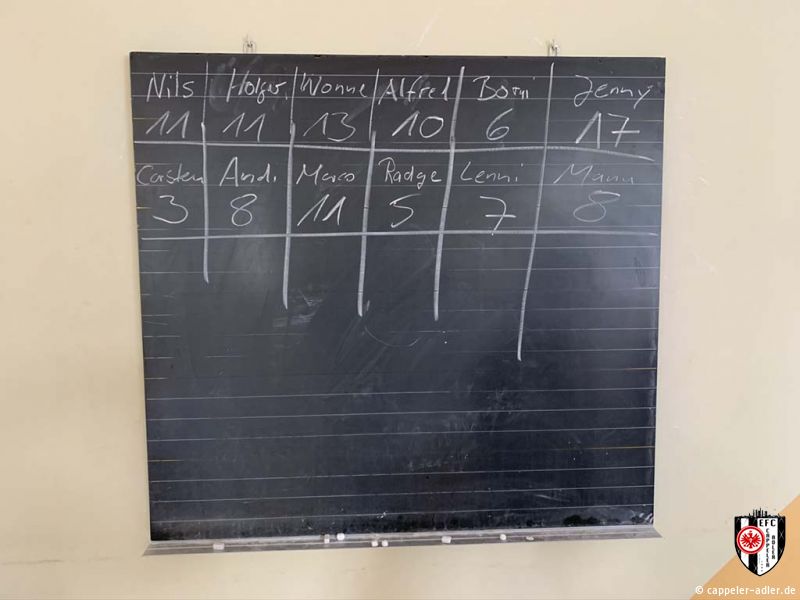 Nils Holger Wonne Alfred Jenny
11 11 13 10 6 17
Carsten Andi Marco Radge Lenni Manu
3 8 11 5 7 8
EFC
CAPPELER
ADLER
© cappeler-adler.de